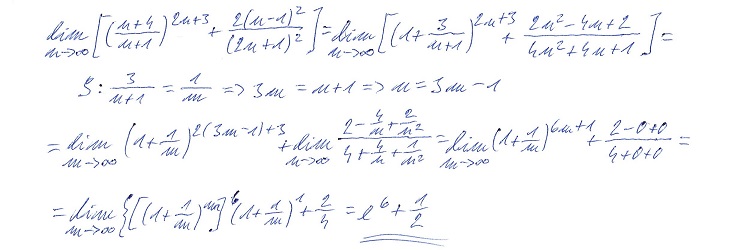 lim n→∞ [((n+4)/(n+1))^(2n+3) + 2(n-1)²/(2n+1)²] = lim n→∞ [(1 + 3/(n+1))^(2n+3) + (2n²-4n+2)/(4n²+4n+1)] =
S: 3/(n+1) = 1/m => 3m = n+1 => n = 3m-1
= lim m→∞ (1+1/m)^(2(3m-1)+3) + lim n→∞ (2 - 4/n + 2/n²)/(4 + 4/n + 1/n²) = lim m→∞ (1+1/m)^(6m+1) + (2-0+0)/(4+0+0) =
= lim m→∞ {[(1+1/m)^m]^6 (1+1/m)^1 + 2/4 = e^6 + 1/2